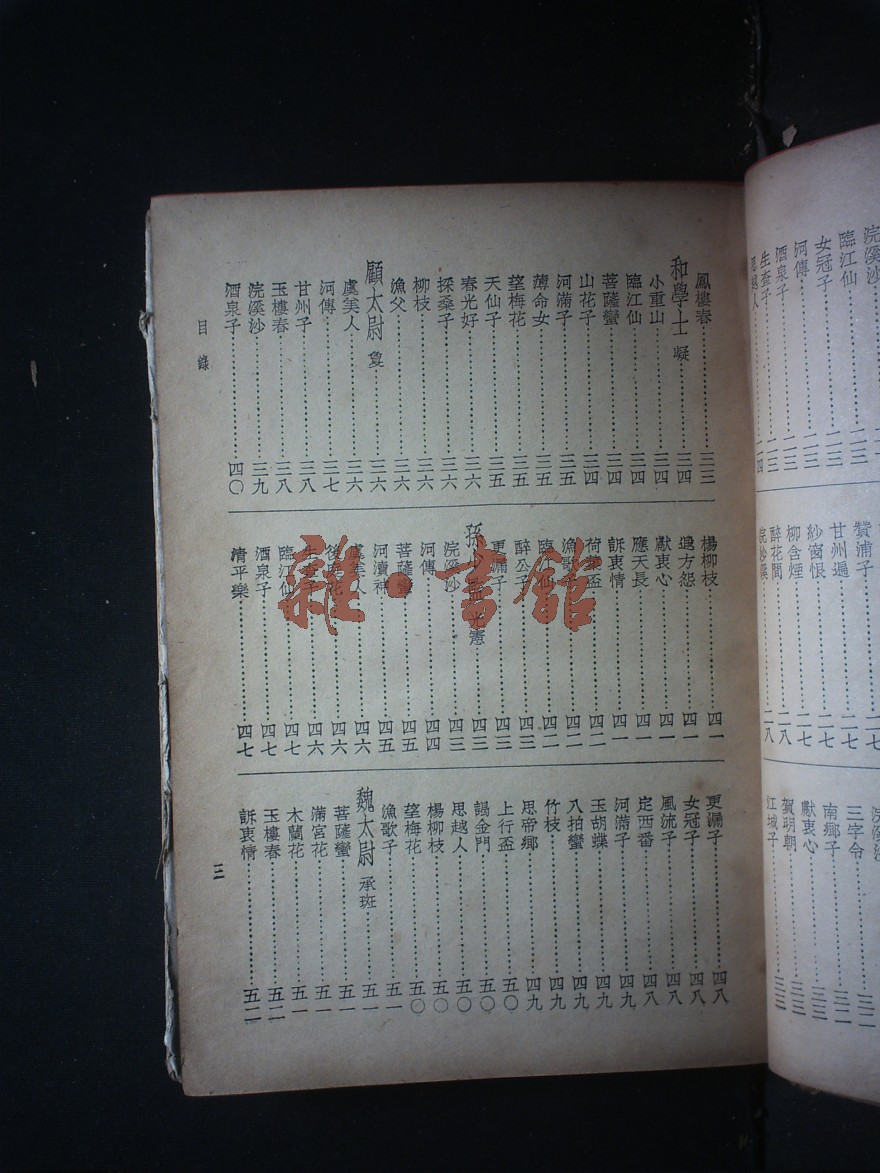 浣溪沙
臨江仙 二三
女冠子 二三
河傳 二三
酒泉子 二三
生查子 二三
思越人 二四
贊浦子 二七
甘州遍 二七
紗窗恨 二七
柳含煙 二七
醉花間 二八
浣紗溪 二八
三字令 三二
南鄉子 三二
獻衷心 三三
賀明朝 三三
江城子 三三
鳳樓春 三三
和學士 凝 三四
小重山 三四
臨江仙 三四
菩薩蠻 三四
山花子 三四
河滿子 三五
薄命女 三五
望梅花 三五
天仙子 三五
春光好 三六
採桑子 三六
柳枝 三六
漁父 三六
顧太尉 夐 三六
虞美人 三六
河傳 三七
甘州子 三八
玉樓春 三八
浣溪沙 三九
酒泉子 四〇
楊柳枝 四一
遐方怨 四一
獻衷心 四一
應天長 四一
訴衷情 四一
荷葉盃 四二
漁歌子 四二
臨江仙 四二
醉公子 四三
更漏子 四三
孫少監 光憲 四三
浣溪沙 四三
河傳 四四
菩薩蠻 四五
河瀆神 四五
虞美人 四六
後庭花 四六
生查子 四六
臨江仙 四七
酒泉子 四七
清平樂 四七
更漏子 四八
女冠子 四八
風流子 四八
定西番 四八
河滿子 四九
玉胡蝶 四九
八拍蠻 四九
竹枝 四九
思帝鄉 四九
上行盃 五〇
謁金門 五〇
思越人 五〇
楊柳枝 五〇
望梅花 五〇
漁歌子 五一
魏太尉 承班 五一
菩薩蠻 五一
滿宮花 五一
木蘭花 五一
玉樓春 五二
訴衷情 五二
目錄
三
雜·書館